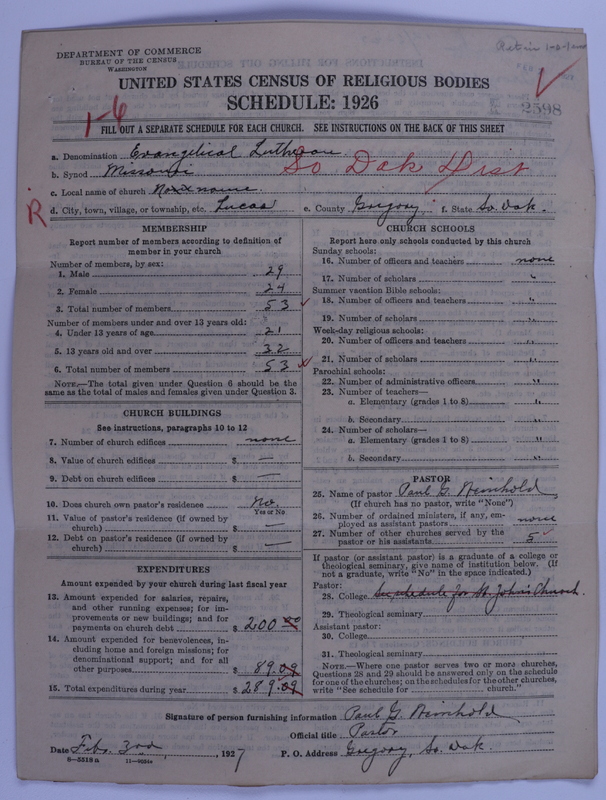 DEPARTMENT OF COMMERCE
BUREAU OF THE CENSUS
WASHINGTON
UNITED STATES CENSUS OF RELIGIOUS BODIES
SCHEDULE: 1926
2598
1-6
FILL OUT A SEPARATE SCHEDULE FOR EACH CHURCH. SEE INSTRUCTIONS ON THE BACK OF THIS SHEET
a. Denomination Evangelical Lutheran
b. Synod Missouri So Dak Dist
c. Local name of church No name
R
d. City, town, village, or township, etc. Lucas e. County Gregory f. State So. Dak.
MEMBERSHIP
Report number of members according to definition of
member in your church
Number of members, by sex:
1. Male 29
2. Female 24
3. Total number of members 53
Number of members under and over 13 years old:
4. Under 13 years of age 21
5. 13 years old and over 32
6. Total number of members 53
NOTE.—The total given under Question 6 should be the
same as the total of males and females given under Question 3.
CHURCH BUILDINGS
See instructions, paragraphs 10 to 12
7. Number of church edifices none
8. Value of church edifices $ —
9. Debt on church edifices $ —
10. Does church own pastor's residence No.
Yes or No
11. Value of pastor's residence (if owned by
church) $ —
12. Debt on pastor's residence (if owned by
church) $ —
EXPENDITURES
Amount expended by your church during last fiscal year
13. Amount expended for salaries, repairs,
and other running expenses; for im-
provements or new buildings; and for
payments on church debt $ 200 00
14. Amount expended for benevolences, in-
cluding home and foreign missions; for
denominational support; and for all
other purposes $ 89.09
15. Total expenditures during year $ 289.09
CHURCH SCHOOLS
Report here only schools conducted by this church
Sunday schools:
16. Number of officers and teachers none
17. Number of scholars "
Summer vacation Bible schools:
18. Number of officers and teachers "
19. Number of scholars "
Week-day religious schools:
20. Number of officers and teachers "
21. Number of scholars "
Parochial schools:
22. Number of administrative officers "
23. Number of teachers—
a. Elementary (grades 1 to 8) "
b. Secondary "
24. Number of scholars—
a. Elementary (grades 1 to 8) "
b. Secondary "
PASTOR
25. Name of pastor Paul G. Weinhold
(If church has no pastor, write "None")
26. Number of ordained ministers, if any, em-
ployed as assistant pastors none
27. Number of other churches served by the
pastor or his assistants 5
If pastor (or assistant pastor) is a graduate of a college or
theological seminary, give name of institution below. (If
not a graduate, write "No" in the space indicated.)
Pastor:
28. College See schedule for St. John's Church.
29. Theological seminary
Assistant pastor:
30. College
31. Theological seminary
NOTE.—Where one pastor serves two or more churches,
Questions 28 and 29 should be answered only on the schedule
for one of the churches; on the schedules for the other churches,
write "See schedule for church."
Signature of person furnishing information Paul G. Weinhold
Official title Pastor
Date Feb. 3rd, 1927 P. O. Address Gregory, So. Dak.
8—5318 a 11—9051a